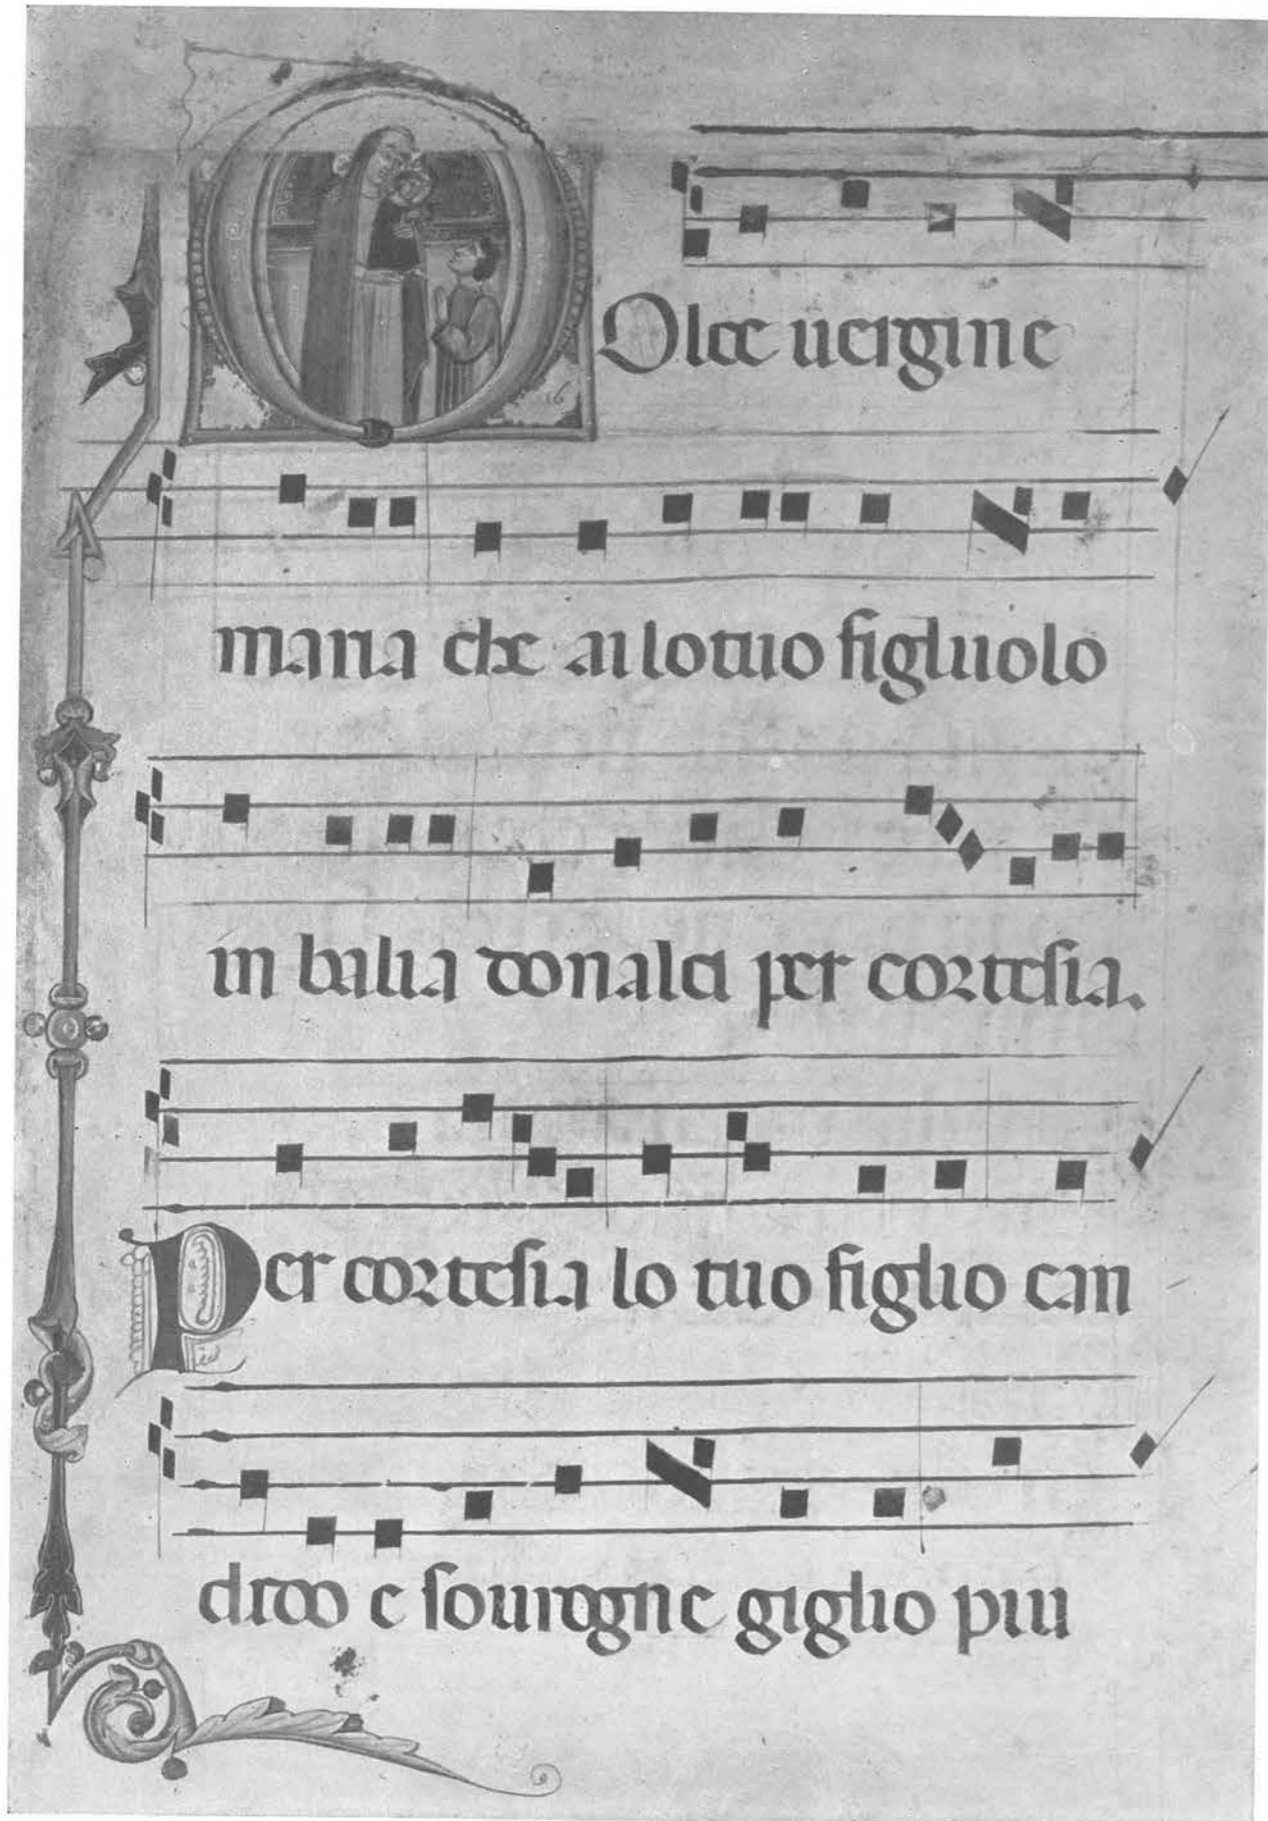 Olce uergine
maria che ai lo tuo figluolo
in balia donalci per cortesia.
Per cortesia lo tuo figlio can
dido e sourogne giglio piu
16